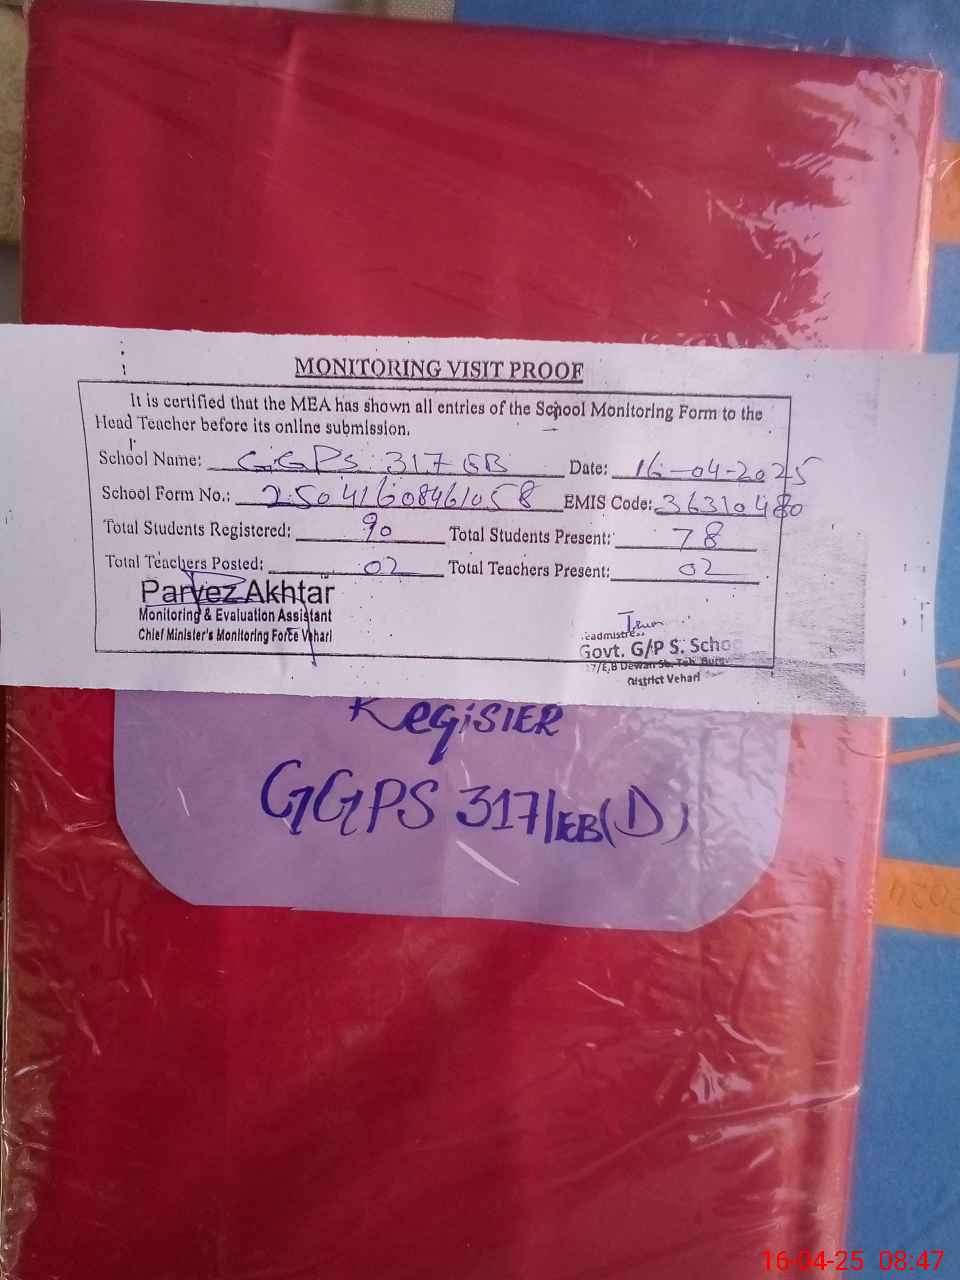 MONITORING VISIT PROOF
It is certified that the MEA has shown all entries of the School Monitoring Form to the
Head Teacher before its online submission.
School Name: GGPS 317 EB Date: 16-04-2025
School Form No.: 25041608461058 EMIS Code: 36310480
Total Students Registered: 90 Total Students Present: 78
Total Teachers Posted: 02 Total Teachers Present: 02
Parvez Akhtar
Monitoring & Evaluation Assistant
Chief Minister's Monitoring Force Vehari
Govt. G/P S. Scho
17/E,B Dewan Sb. Teh. Bure
District Vehari
Register
GGPS 317/EB(D)
16-04-25 08:47